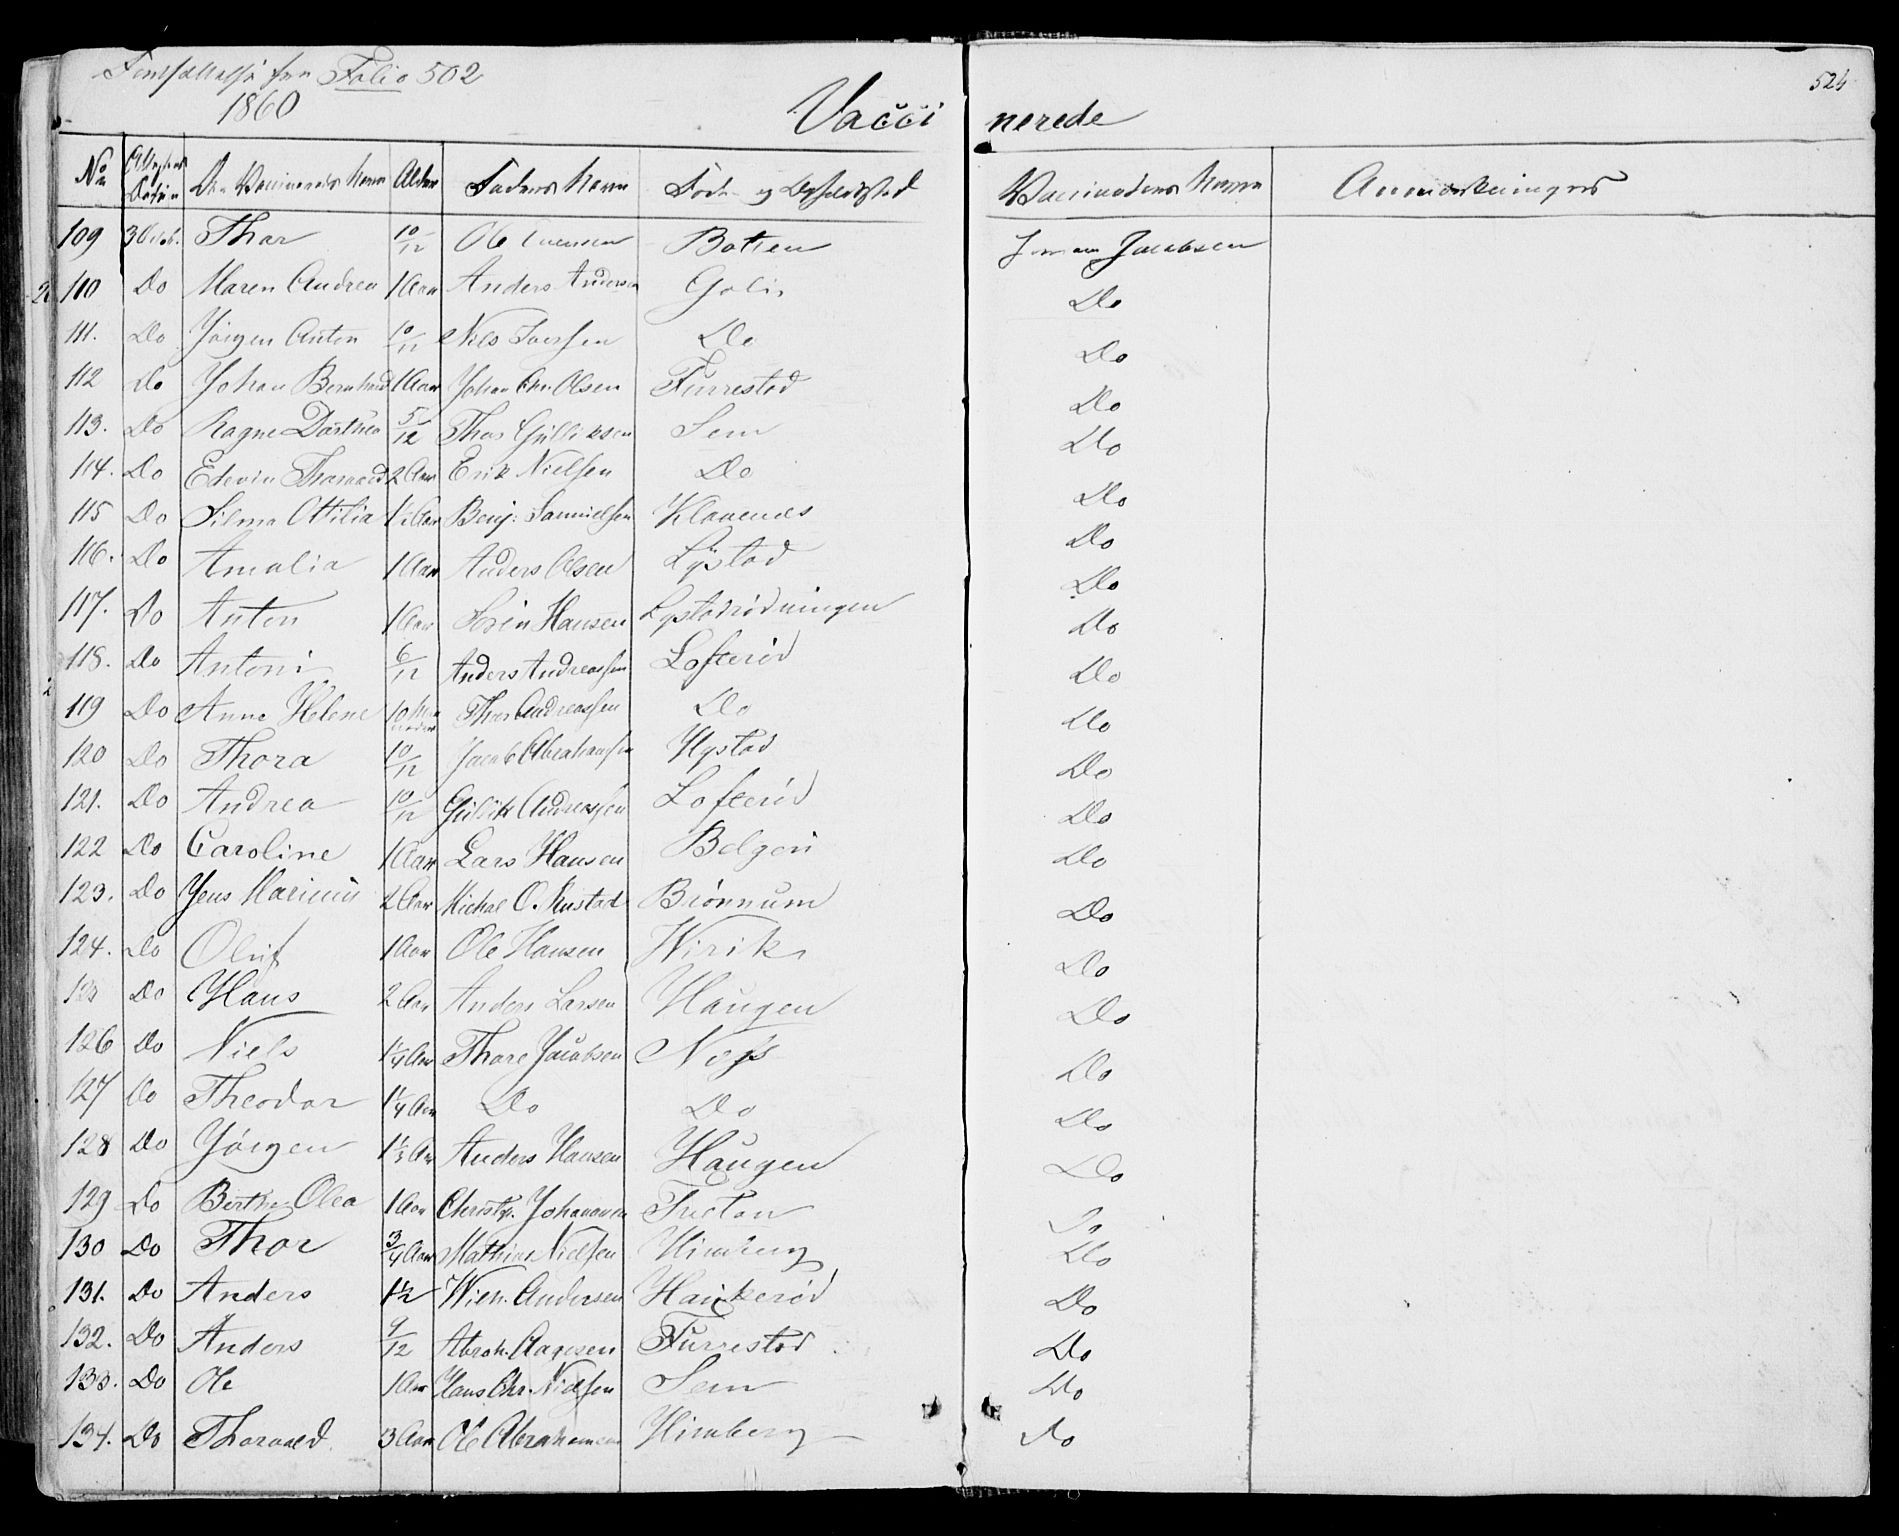 Fortsættelse fra Folio 502
1860
Vacci nerede
524
No Attestens Datum Den Vaccineredes Navn Alder Faders Navn Føde- og Opholdssted Vaccinateurens Navn Anmærkninger
109 3 Octb. Thor 10/12 Ole Botten Jacobsen
110 Do Maren Andrea 1 Aar Anders Andersen Goli Do
111. Do Jørgen Anton 10/12 Nils Iversen Do Do
112 Do Johan Bernhard 1 Aar Johan Chr. Olsen Furrestad Do
113. Do Ragne Dorthea 5/12 Thor Gulliksen Sem Do
114. Do Edevin Thorvald 2 Aar Erik Nielsen Do Do
115 Do Silma Ottilia 1½ Aar Benj: Samuelsen Klavenes Do
116. Do Amalia 1 Aar Anders Olsen Lystad Do
117. Do Anton 1 Aar Sørin Hansen Lystadrødningen Do
118. Do Antoni 6/12 Anders Andreassen Lofterød Do
119 Do Anne Helene 10 Maaneder Thor Andreassen Do Do
120 Do Thora 10/12 Jacob Abrahamsen Hystad Do
121. Do Andrea 10/12 Gulik Andreassen Lofterød Do
122 Do Caroline 1 Aar Lars Hansen Belgen Do
123. Do Jens Marinius 2 Aar Michael O. Rustad Brønnum Do
124. Do Oluf 1 Aar Ole Hansen Wirik Do
125 Do Hans 2 Aar Anders Larsen Haugen Do
126 Do Niels 1¼ Aar Thore Jacobsen Næss Do
127 Do Theodor 1¼ Aar Do Do Do
128 Do Jørgen 1½ Aar Anders Hansen Haugen Do
129 Do Berthe Olea 1 Aar Christ. Johannesen Do
130 Do Thor 3/4 Aar Mathias Nielsen Himberg Do
131. Do Anders 1½ Andersen Haukerød Do
132. Do Anders 9/12 Abrah. Aagesen Furrestad Do
133. Do Ole 1 Aar Hans Chr. Nielsen Sem Do
134. Do Thorvald. 3 Aar Ole Abrahamsen Himberg Do